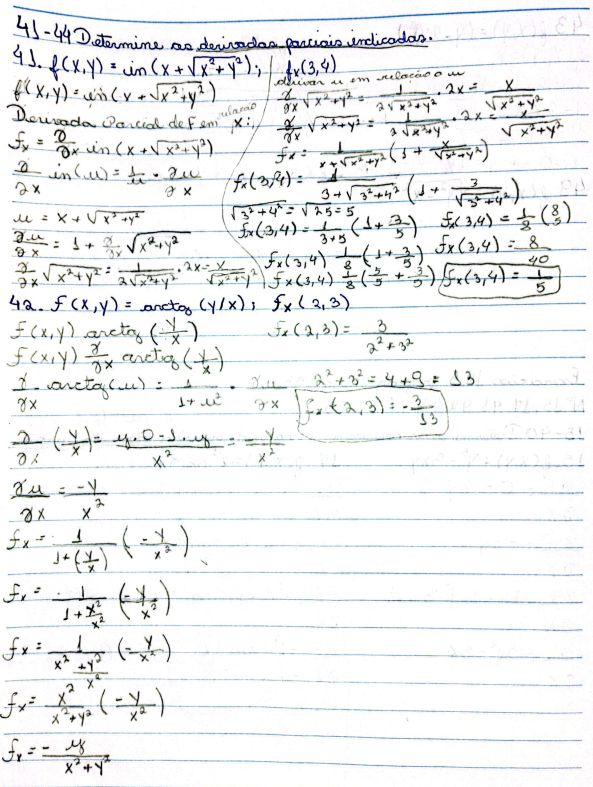 41-44 Determine as derivadas parciais indicadas.
41. f(x,y) = ln (x + √x²+y²); fx(3,4)
f(x,y) = ln (x + √x²+y²)
Derivada Parcial de F em relação x:
fx = ∂/∂x ln (x + √x²+y²)
∂/∂x ln(u) = 1/u · ∂u/∂x
u = x + √x²+y²
∂u/∂x = 1 + ∂/∂x √x²+y²
∂/∂x √x²+y² = 1/2√x²+y² · 2x = x/√x²+y²
derivar u em relação a u
∂/∂x √x²+y² = 1/2√x²+y² · 2x = x/√x²+y²
∂/∂x √x²+y² = 1/2√x²+y² · 2x = x/√x²+y²
fx = 1/x+√x²+y² (1 + x/√x²+y²)
fx(3,4) = 1/3+√3²+4² (1 + 3/√3²+4²)
√3²+4² = √25 = 5
fx(3,4) = 1/3+5 (1 + 3/5)
fx(3,4) 1/8 (1 + 3/5)
fx(3,4) 1/8 (5/5 + 3/5)
fx(3,4) = 1/8 (8/5)
fx(3,4) = 8/40
fx(3,4) = 1/5
42. f(x,y) = arctg (y/x); fx(2,3)
f(x,y) arctg (y/x)
f(x,y) ∂/∂x arctg (y/x)
∂/∂x · arctg(u) = 1/1+u² · ∂u/∂x
∂/∂x (y/x) = y·0-1·y/x² = -y/x²
∂u/∂x = -y/x²
fx = 1/1+(y/x) (-y/x²)
fx = 1/1+x²/x² (-y/x²)
fx = 1/x²+y²/x² (-y/x²)
fx = x²/x²+y² (-y/x²)
fx = - y/x²+y²
fx(2,3) = 3/2²+3²
2²+3² = 4+9 = 13
fx(2,3) = -3/13